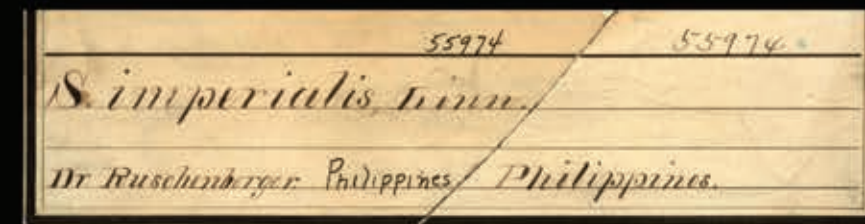 55974 55974
S. imperialis, Linn.
Dr Ruschenberger. Philippines Philippines.